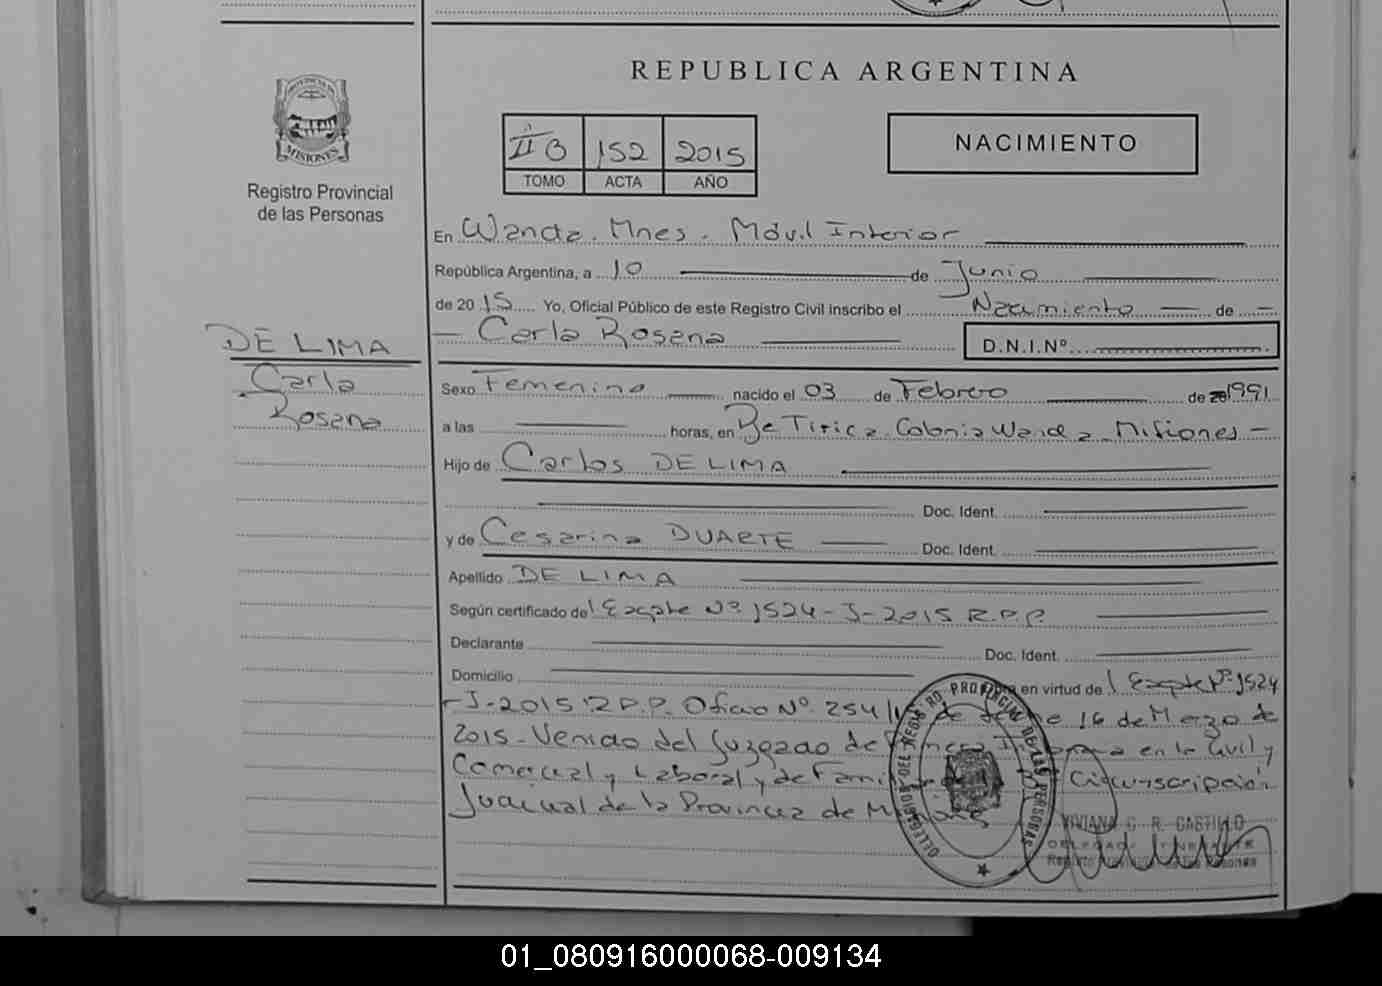 REPUBLICA ARGENTINA
PROVINCIA DE
MISIONES
Registro Provincial
de las Personas
II B 152 2015
TOMO ACTA AÑO
NACIMIENTO
En Wanda. Mnes. Móvil Interior
República Argentina, a 10 de Junio
de 2015 Yo, Oficial Público de este Registro Civil inscribo el Nacimiento de
Carla Rosana
D.N.I.Nº
DE LIMA
Carla
Rosana
Sexo Femenino nacido el 03 de Febrero de 1991
a las horas, en Tirica. Colonia Wanda. Misiones
Hijo de Carlos DE LIMA
Doc. Ident.
y de Cesarina DUARTE Doc. Ident.
Apellido DE LIMA
Según certificado del Expte Nº 1524-J-2015 R.P.P.
Declarante Doc. Ident.
Domicilio en virtud de l Expte Nº 1524
-J-2015 R.P.P. Oficio Nº 254/ de fecha 16 de Marzo de
2015- Venido del Juzgado de Primera Instancia en lo Civil y
Comercial y Laboral y de Familia Circunscripción
Judicial de la Provincia de Misiones
DELEGACION DEL REGISTRO PROVINCIAL DE LAS PERSONAS
VIVIANA C. R. CASTILLO
Registro Provincial de las Personas
01_080916000068-009134